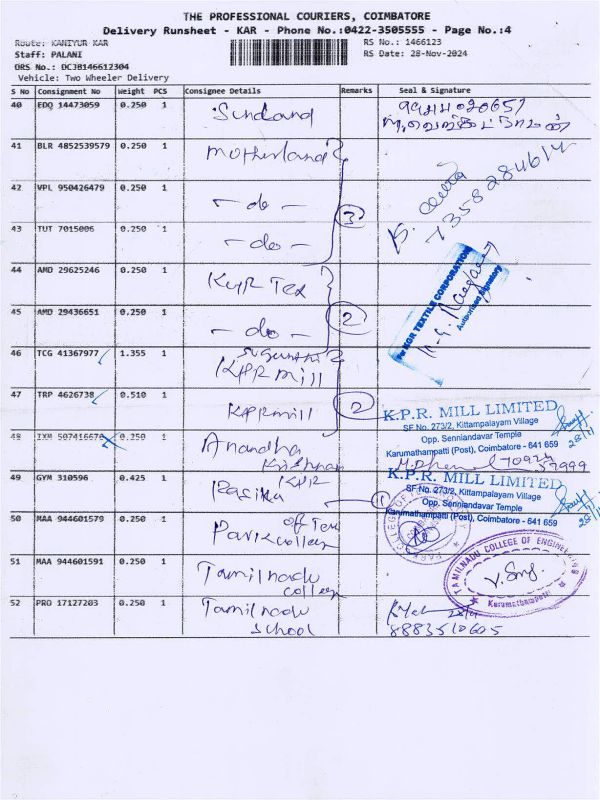 THE PROFESSIONAL COURIERS, COIMBATORE
Delivery Runsheet - KAR - Phone No.:0422-3505555 - Page No.:4
Route: KANIYUR KAR
RS No.: 1466123
Staff: PALANI
RS Date: 28-Nov-2024
DRS No.: DCJB146612304
Vehicle: Two Wheeler Delivery
S No Consignment No Weight PCS Consignee Details Remarks Seal & Signature
40 EDQ 14473059 0.250 1
41 BLR 4852539579 0.250 1 Motherland
7358284614
42 VPL 950426479 0.250 1 - do -
3
43 TUT 7015006 0.250 1 - do -
44 AMD 29625246 0.250 1 KGR Tex
For KGR TEXTILE CORPORATION
Authorised Signatory
45 AMD 29436651 0.250 1 - do -
2
46 TCG 41367977 1.355 1
KPR mill
47 TRP 4626738 0.510 1 KPR mill
2
K.P.R. MILL LIMITED
SF No. 273/2, Kittampalayam Village
Opp. Senniandavar Temple
Karumathampatti (Post), Coimbatore - 641 659
48 IXM 507416670 0.250 1 Anandha
Krishnan
KPR
49 GYM 310596 0.425 1 Rasika
1
K.P.R. MILL LIMITED
SF No. 273/2, Kittampalayam Village
Opp. Senniandavar Temple
Karumathampatti (Post), Coimbatore - 641 659
50 MAA 944601579 0.250 1
Park college
of Tex
51 MAA 944601591 0.250 1 Tamilnadu
college
TAMILNADU COLLEGE OF ENGINEERING
Karumathampatti
52 PRO 17127203 0.250 1 Tamilnadu
School
8883510605